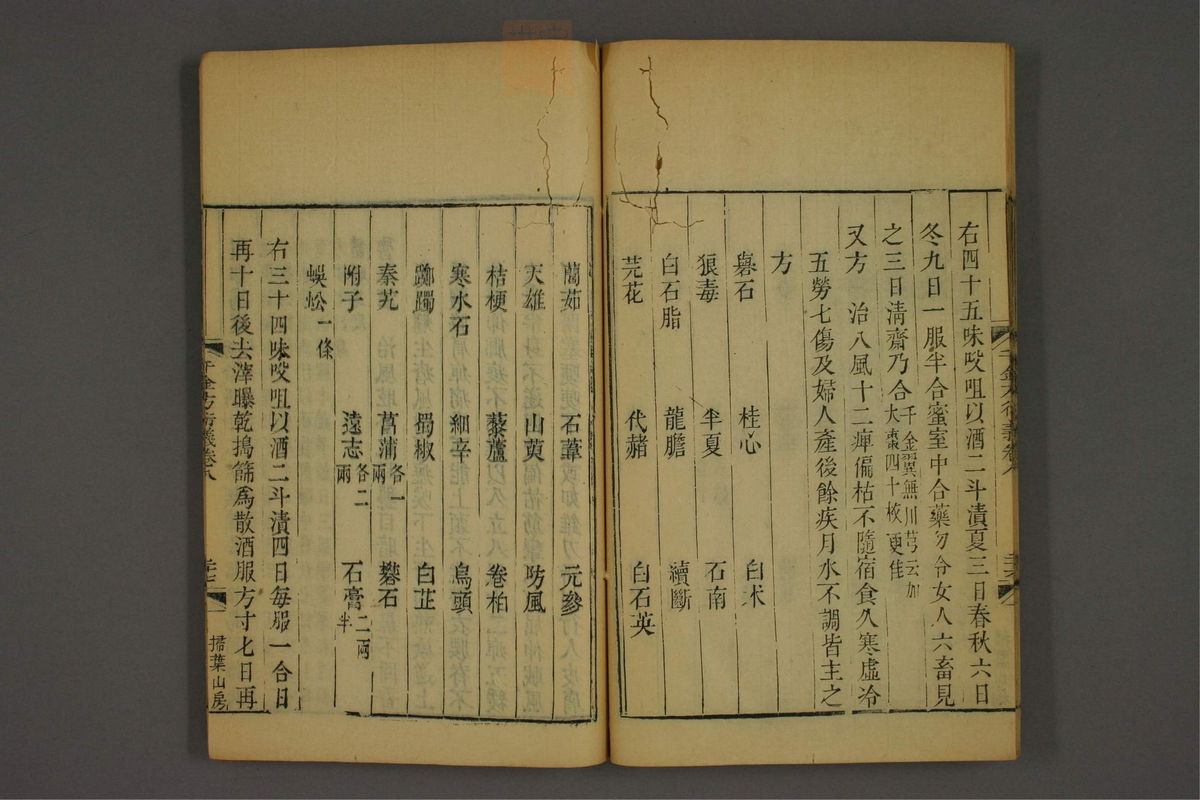 右四十五味㕮咀以酒二斗漬夏三日春秋六日
冬九日一服半合蜜室中合藥勿令女人六畜見
之三日淸齋乃合千金翼無川芎云加大棗四十枚更佳
又方　治八風十二痺偏枯不隨宿食久寒虛冷
五勞七傷及婦人產後餘疾月水不調皆主之
方
礜石　桂心　白朮
狼毒　半夏　石南
白石脂　龍膽　續斷
芫花　代赭　白石英
千金方衍義卷八
䕡茹　石葦　元參
天雄　山萸　防風
桔梗　藜蘆　卷柏
寒水石　細辛　烏頭
躑躅　蜀椒　白芷
秦艽　菖蒲各一兩　礬石
附子　遠志各二兩　石膏二兩半
蜈蚣一條
右三十四味㕮咀以酒二斗漬四日每服一合日
再十日後去滓曝乾搗篩爲散酒服方寸七日再
千金方衍義卷八
掃葉山房